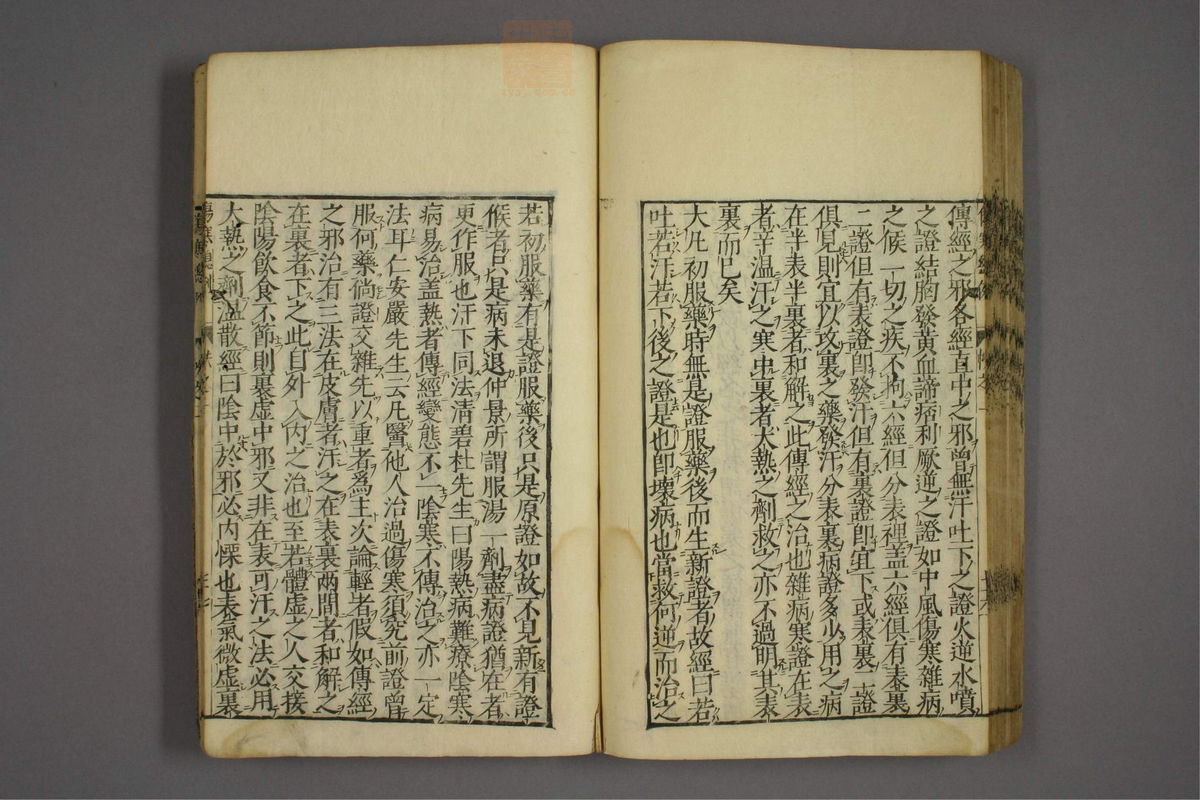 傳經之邪各經直中之邪曾無汗吐下之證火逆水噴
之證結胸發黃血諦痞利厥逆之證如中風傷寒雜病
之候一切之疾不拘六經但分表裡盖六經俱有表裏
二證但有表證即發汗但有裏證即宜下或表裏二證
俱見則宜以攻裏之藥發汗分表裏病證多少用之病
在半表半裏者和解之此傳經之治也雜病寒證在表
者辛温汗之寒中裏者大熱之劑救之亦不過明其表
裏而已矣
大凡初服藥時無是證服藥後而生新證者故經曰若
吐若汗若下後之證是也即壞病也當救何逆而治之
若初服藥有是證服藥後只是原證如故不見新有證
候者只是病未退仲景所謂服湯一劑盡病證猶在者
更作服也汗下同法清碧杜先生曰陽熱病難療陰寒
病易治盖熱者傳經變態不一陰寒不傳治之亦一定
法耳仁安嚴先生云凡醫他人治過傷寒須究前證曾
服何藥倘證交雜先以重者爲主次論輕者假如傳經
之邪治有三法在皮膚者汗之在表裏两間者和解之
在裏者下之此自外入内之治也至若體虚之人交接
陰陽飲食不節則裏虚中邪又非在表可汗之法必用
大熱之劑温散經曰陰中於邪必内慄也表氣微虚裏